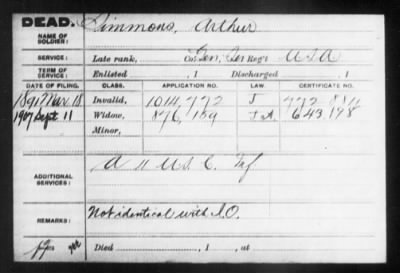 DEAD. Simmons, Arthur
NAME OF SOLDIER:
SERVICE: Late rank, Co. Gen. Ser Reg't U S A
TERM OF SERVICE: Enlisted , 1 Discharged , 1
DATE OF FILING. CLASS. APPLICATION NO. LAW. CERTIFICATE NO.
1891 Mar. 18 Invalid, 1014,772 J
1907 Sept 11 Widow, 876,189 643,198
Minor,
ADDITIONAL SERVICES: A 11 U.S. C. Inf.
REMARKS: Not identical with I.O.
Died , 1 , at